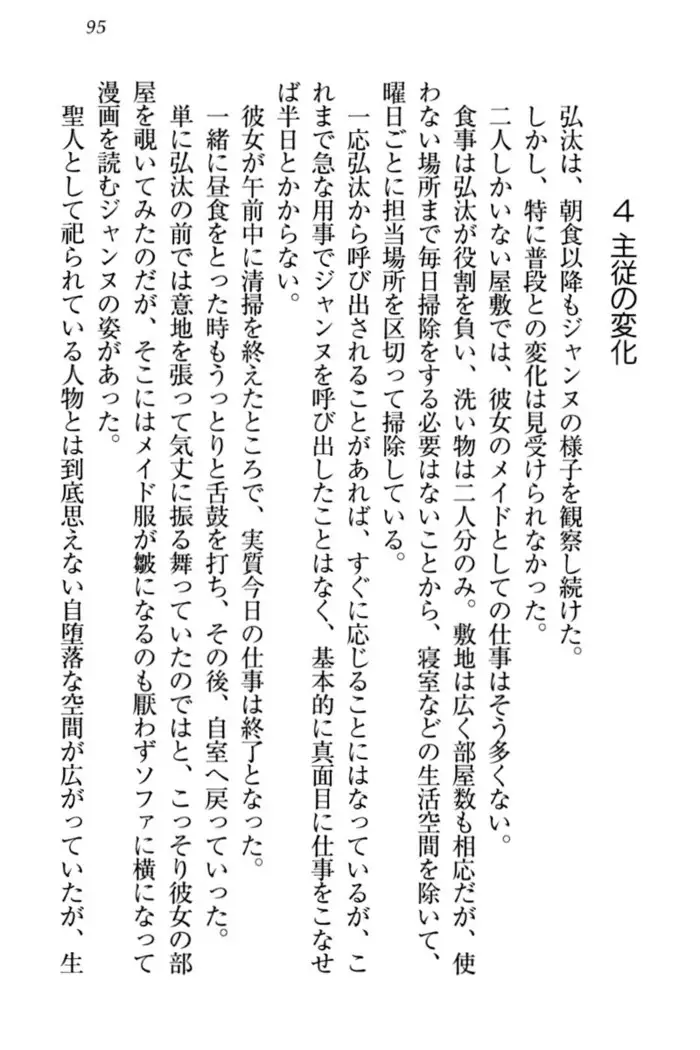 95
4 主従の変化
弘汰は、朝食以降もジャンヌの様子を観察し続けた。
しかし、特に普段との変化は見受けられなかった。
二人しかいない屋敷では、彼女のメイドとしての仕事はそう多くない。
食事は弘汰が役割を負い、洗い物は二人分のみ。敷地は広く部屋数も相応だが、使
わない場所まで毎日掃除をする必要はないことから、寝室などの生活空間を除いて、
曜日ごとに担当場所を区切って掃除している。
一応弘汰から呼び出されることがあれば、すぐに応じることにはなっているが、こ
れまで急な用事でジャンヌを呼び出したことはなく、基本的に真面目に仕事をこなせ
ば半日とかからない。
彼女が午前中に清掃を終えたところで、実質今日の仕事は終了となった。
一緒に昼食をとった時もうっとりと舌鼓を打ち、その後、自室へ戻っていった。
単に弘汰の前では意地を張って気丈に振る舞っていたのではと、こっそり彼女の部
屋を覗いてみたのだが、そこにはメイド服が皺になるのも厭わずソファに横になって
漫画を読むジャンヌの姿があった。
聖人として祀られている人物とは到底思えない自堕落な空間が広がっていたが、生